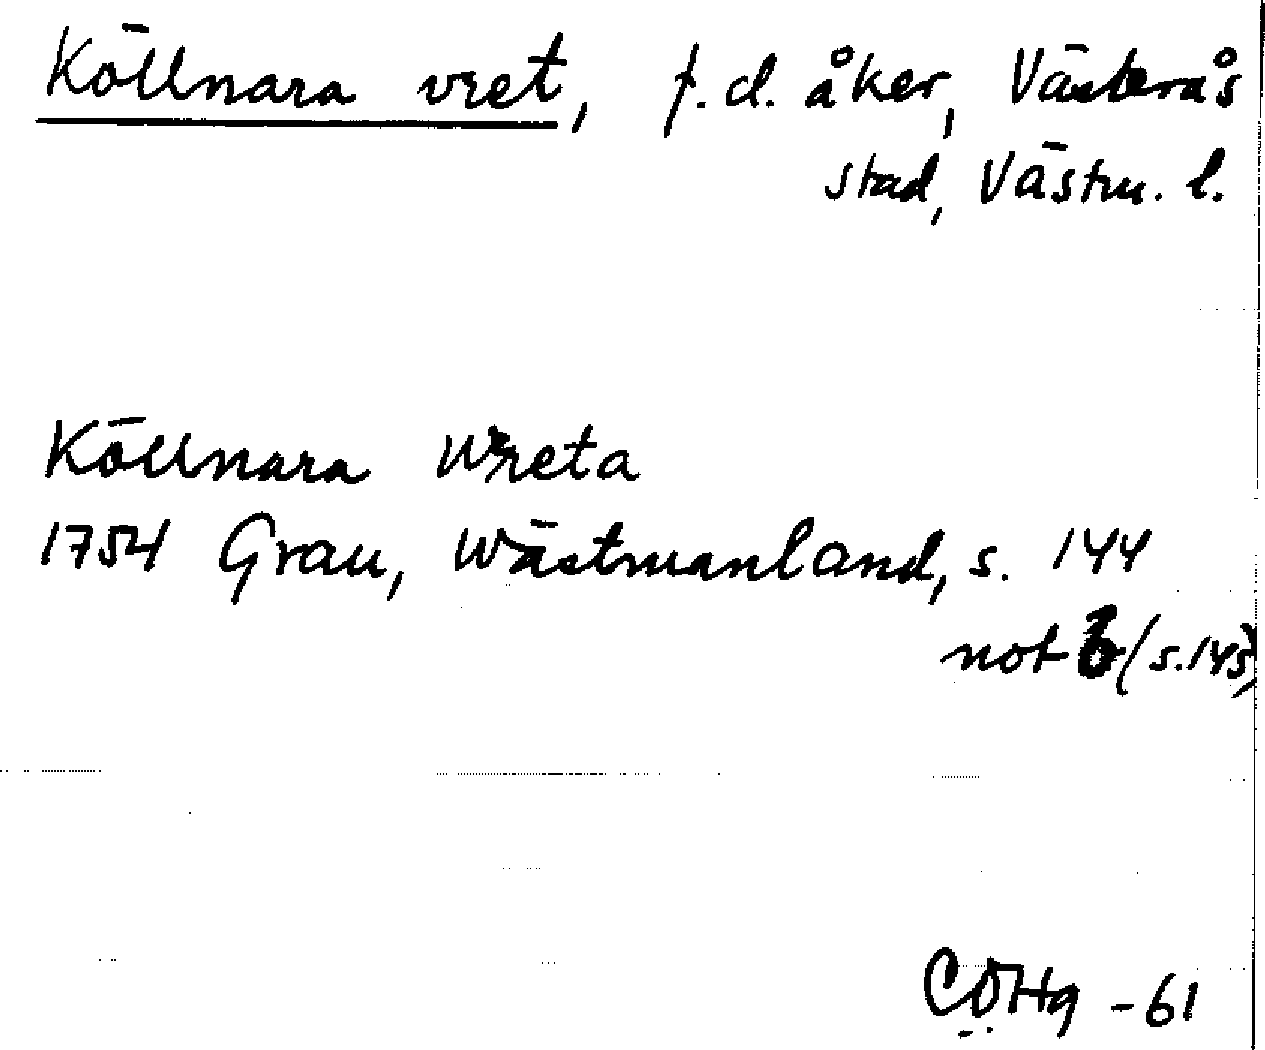 Köllnara vret, f.d. åker, Västerås
stad, Västm. l.
Köllnara Wreta
1754 Grau, Wästmanland, s. 144
not (s. 145)
CÖHg -61